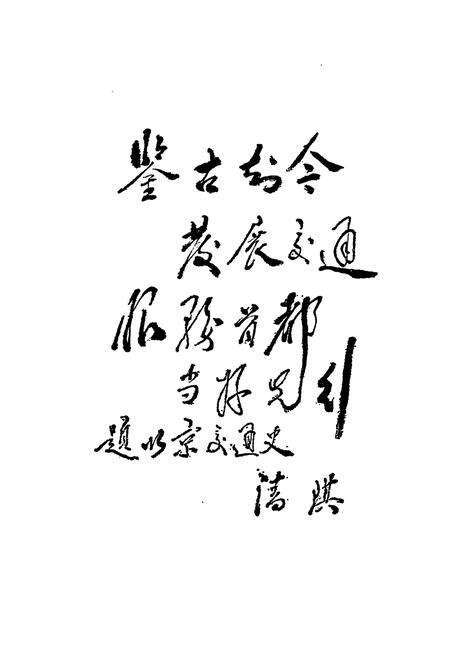 鉴古知今
發展交通
服務首都
当好先行
题北京交通史
潘琪